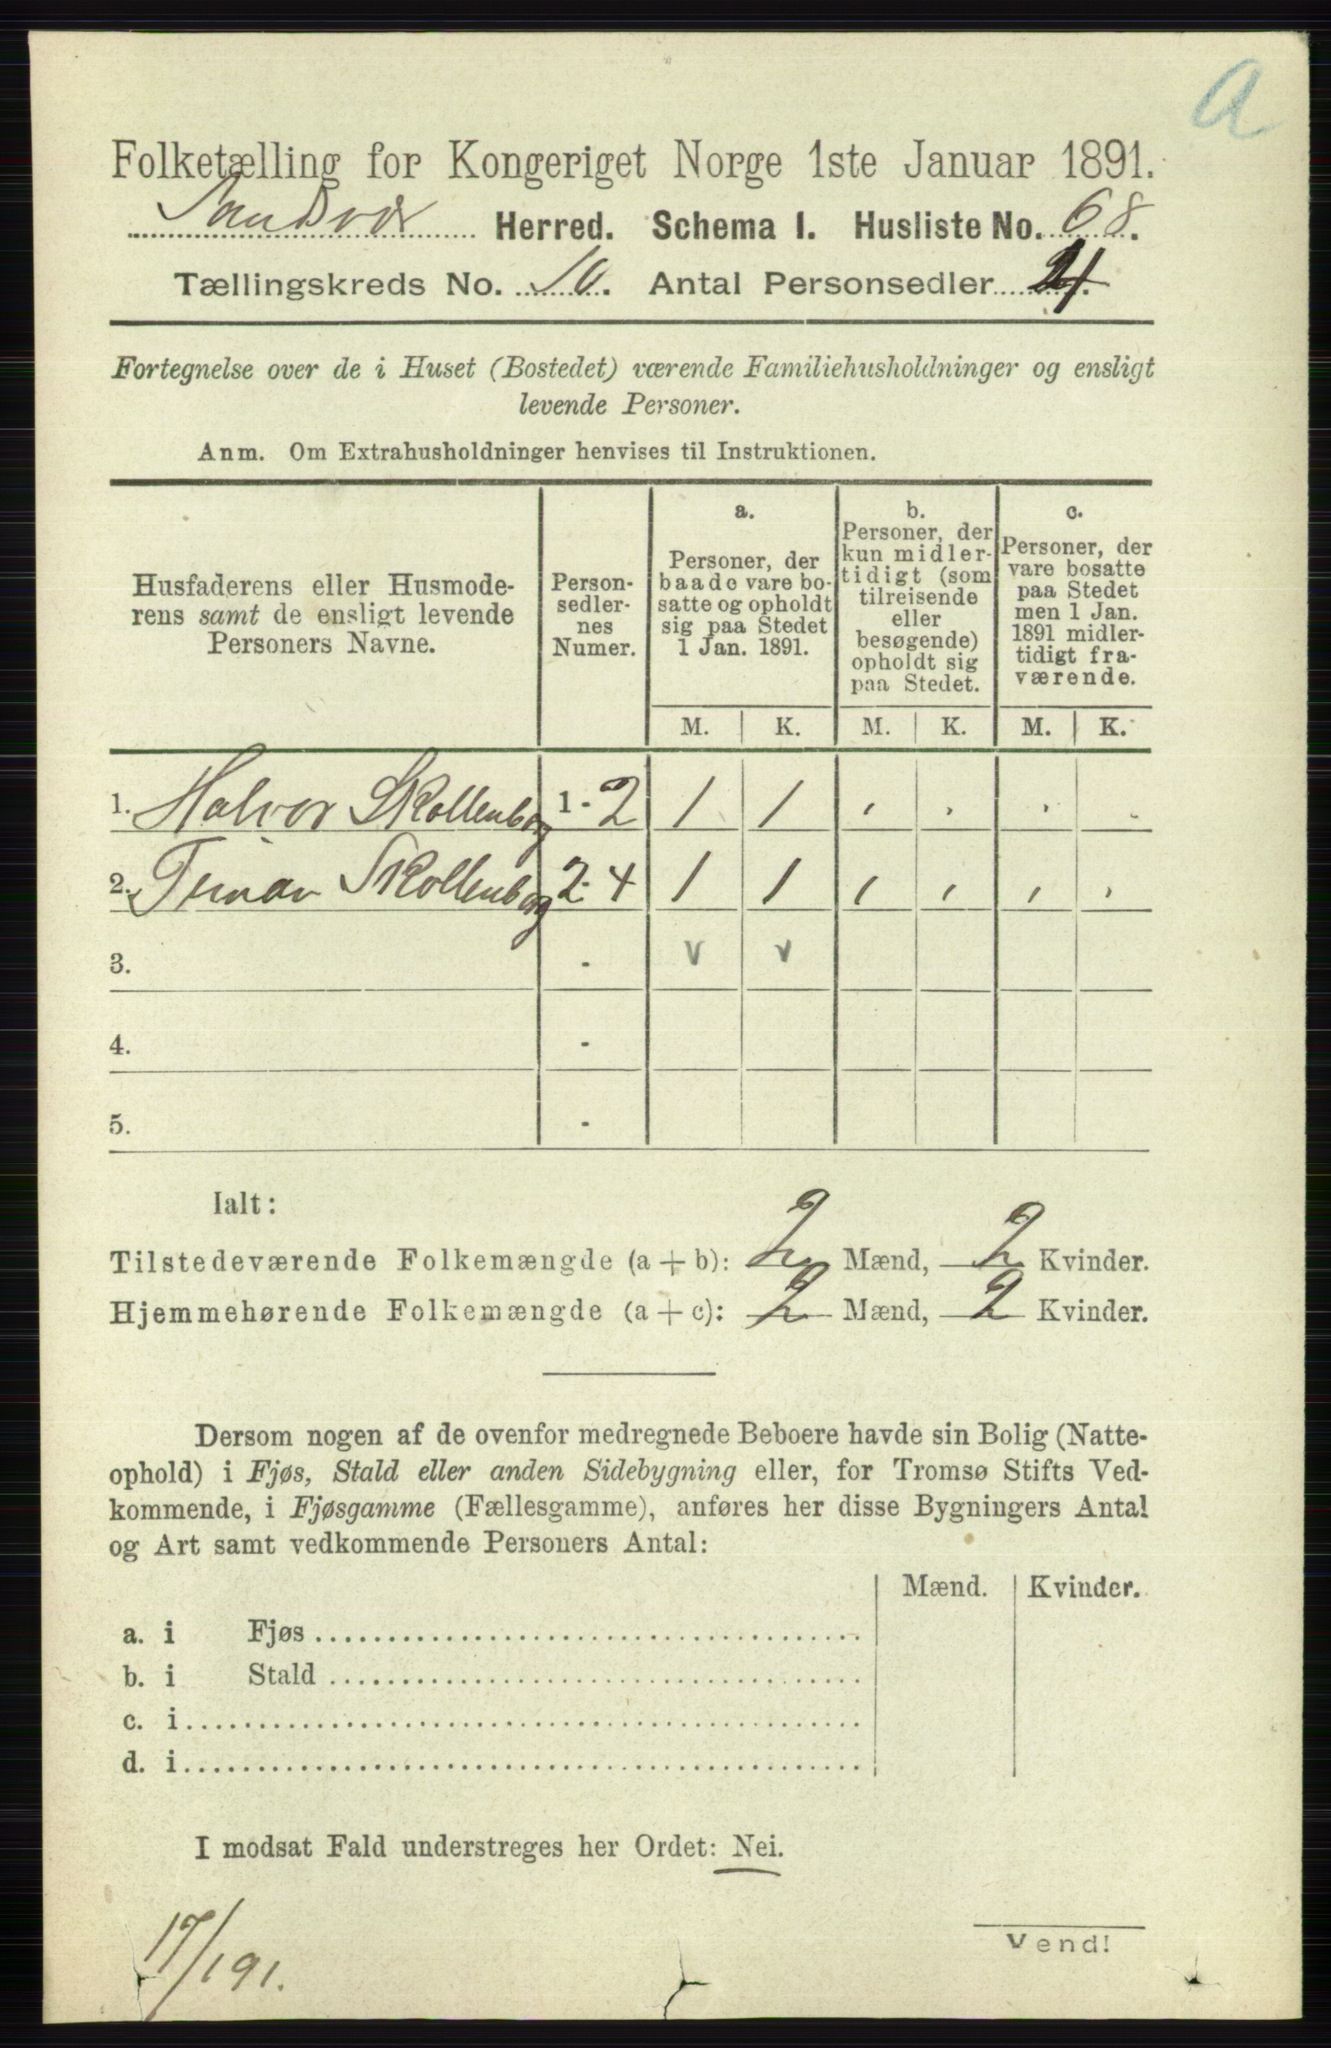 a
Folketælling for Kongeriget Norge 1ste Januar 1891.
Sandsvær Herred. Schema I. Husliste No. 68.
Tællingskreds No. 10. Antal Personsedler 4.
Fortegnelse over de i Huset (Bostedet) værende Familiehusholdninger og ensligt
levende Personer.
Anm. Om Extrahusholdninger henvises til Instruktionen.
Husfaderens eller Husmode-
rens samt de ensligt levende
Personers Navne.
Person-
sedler-
nes
Numer.
a.
Personer, der
baade vare bo-
satte og opholdt
sig paa Stedet
1 Jan. 1891.
b.
Personer, der
kun midler-
tidigt (som
tilreisende
eller
besøgende)
opholdt sig
paa Stedet.
c.
Personer, der
vare bosatte
paa Stedet
men 1 Jan.
1891 midler-
tidigt fra-
værende.
M. K. M. K. M. K.
1. Halvor Skollenborg 1 - 2 1 1 . . . .
2. Skollenborg 2 - 4 1 1 , , , ,
3. - v v
4. -
5. -
Ialt:
Tilstedeværende Folkemængde (a + b): 2 Mænd, 2 Kvinder.
Hjemmehørende Folkemængde (a + c): 2 Mænd, 2 Kvinder.
Dersom nogen af de ovenfor medregnede Beboere havde sin Bolig (Natte-
ophold) i Fjøs, Stald eller anden Sidebygning eller, for Tromsø Stifts Ved-
kommende, i Fjøsgamme (Fællesgamme), anføres her disse Bygningers Antal
og Art samt vedkommende Personers Antal:
Mænd. Kvinder.
a. i Fjøs
b. i Stald
c. i
d. i
I modsat Fald understreges her Ordet: Nei.
Vend!
17/1 91.